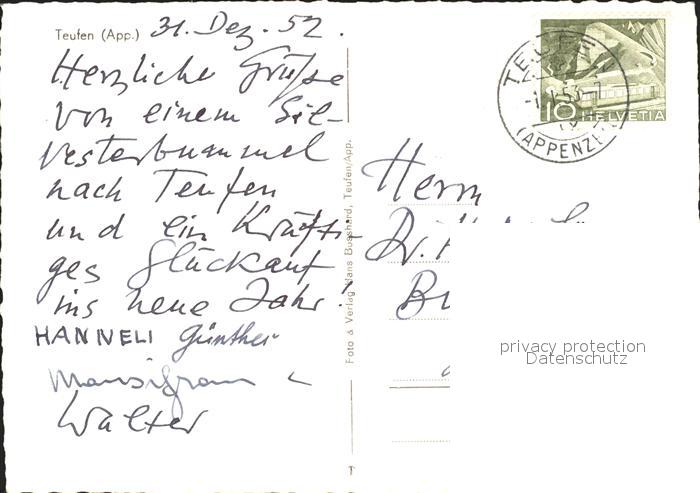 Teufen (App.) 31. Dez. 52.
Herzliche Grüsse
von einem Sil-
vesterbummel
nach Teufen
und ein Kräfti-
ges Glückauf
ins neue Jahr!
HANNELI Günther
Walter
Foto & Verlag Hans Bosshard, Teufen/App.
TEUFEN
-1.1.53-7
(APPENZELL)
10 HELVETIA
Herrn
Dr.
privacy protection
Datenschutz